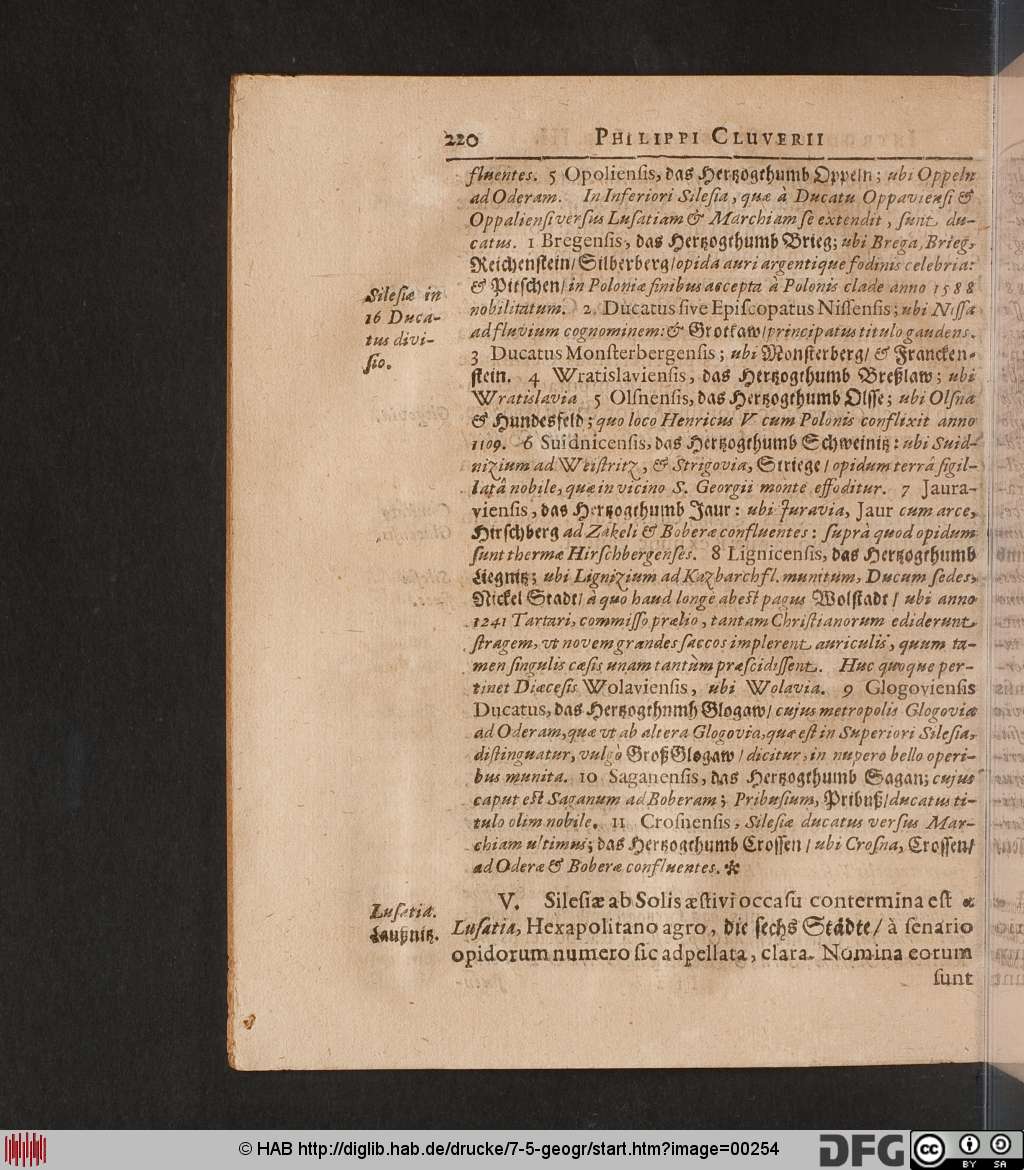 220 PHILIPPI CLUVERII
fluentes. 5 Opolienſis, das Hertzogthumb Oppeln; ubi Oppeln
ad Oderam. In Inferiori Sileſia, quæ à Ducatu Oppavienſi &
Oppalienſi verſus Luſatiam & Marchiam ſe extendit, ſunt du-
catus. 1 Bregenſis, das Hertzogthumb Brieg; ubi Brega, Brieg,
Reichenſtein/ Silberberg/ opida auri argentique fodinis celebria:
& Pitſchen/ in Poloniæ finibus accepta à Polonis clade anno 1588
nobilitatum. 2 Ducatus ſive Epiſcopatus Niſſenſis; ubi Niſſa
ad fluvium cognominem: & Grotkaw/ principatus titulo gaudens.
3 Ducatus Monſterbergenſis; ubi Monſterberg/ & Francken-
ſtein. 4 Wratislavienſis, das Hertzogthumb Breßlaw; ubi
Wratislavia 5 Olſnenſis, das Hertzogthumb Olſſe; ubi Olſna
& Hundesfeld; quo loco Henricus V cum Polonis conflixit anno
1109. 6 Suidnicenſis, das Hertzogthumb Schweinitz: ubi Suid-
nizium ad Weiſtritz, & Strigovia, Striege/ opidum terrâ ſigil-
latâ nobile, quæ in vicino S. Georgii monte effoditur. 7 Jaura-
vienſis, das Hertzogthumb Jaur: ubi Juravia, Jaur cum arce,
Hirſchberg ad Zakeli & Boberæ confluentes: ſuprà quod opidum
ſunt thermæ Hirſchbergenſes. 8 Lignicenſis, das Hertzogthumb
Liegnitz; ubi Lignizium ad Kazbarch fl. munitum, Ducum ſedes,
Nickel Stadt/ à quo haud longe abest pagus Wolſtadt/ ubi anno
1241 Tartari, commiſſo prælio, tantam Chriſtianorum ediderunt
ſtragem, vt novem grandes ſaccos implerent auriculis, quum ta-
men ſingulis cæſis unam tantùm præſcidiſſent. Huc quoque per-
tinet Diæceſis Wolavienſis, ubi Wolavia. 9 Glogovienſis
Ducatus, das Hertzogthnmh Glogaw/ cujus metropolis Glogovia
ad Oderam, quæ vt ab altera Glogovia, quæ eſt in Superiori Sileſia,
diſtinguatur, vulgò Groß Glogaw/ dicitur, in nupero bello operi-
bus munita. 10 Saganenſis, das Hertzogthumb Sagan; cujus
caput eſt Saganum ad Boberam; Pribuſium, Pribuß/ ducatus ti-
tulo olim nobile. 11 Croſnenſis, Sileſiæ ducatus verſus Mar-
chiam ultimus; das Hertzogthumb Croſſen/ ubi Croſna, Croſſen/
ad Oderæ & Boberæ confluentes.*
Sileſiæ in
16 Duca-
tus divi-
ſio.
V. Sileſiæ ab Solis æſtivi occaſu contermina eſt
Luſatia, Hexapolitano agro, die ſechs Städte/ à ſenario
opidorum numero ſic adpellata, clara. Nomina eorum
ſunt
Luſatia.
Laußnitz.
© HAB http://diglib.hab.de/drucke/7-5-geogr/start.htm?image=00254
DFG
cc BY SA